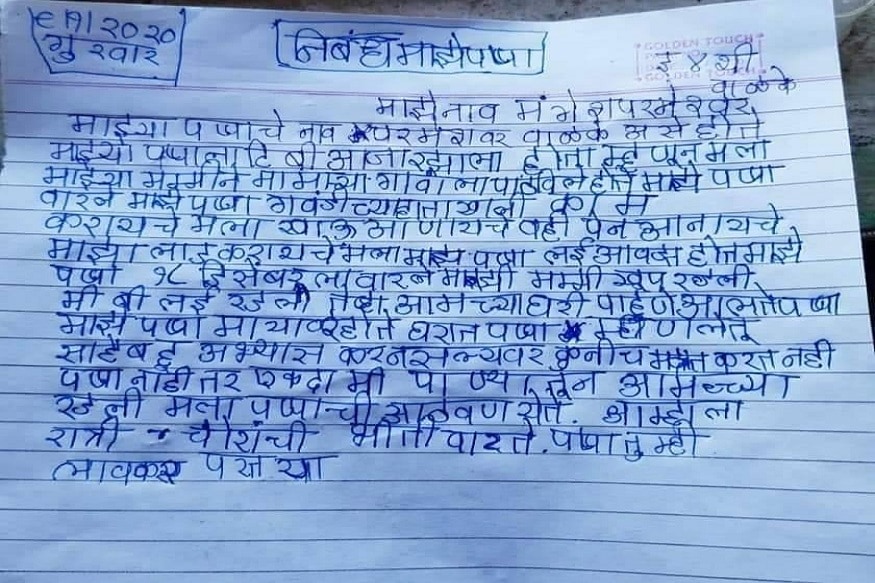 ९/१/२०२०
गुरुवार
निबंध माझे पप्पा
GOLDEN TOUCH
इ ४ थी
माझे नाव मंगेश परमेश्वर वाळके
माझ्या पप्पाचे नाव परमेशवर वाळके असे होते
माझ्या पप्पाला टि बी आजार झाला होता म्हणून मला
माझ्या मम्मीने मामाच्या गावाला पाठविले होते माझे पप्पा
वारले माझे पप्पा गवंडीच्या हाताखाली काम
करायचे मला खाऊ आणायचे वही पेन आनायचे
माझा लाड करायचे मला माझे पप्पा लई आवडत होत माझे
पप्पा १८ डिसेंबर ला वारले माझी मम्मी खूप रडली
मी बी लई रडलो तेव्हा आमच्या घरी पाहूणे आलते पप्पा
माझे पप्पा मायाळू होते घरात पप्पा म्हणले तू
साहेब हु अभ्यास कर
कुनीच मदत करत नही
पप्पा नाही तर एकदा मी पाण्यातून आमच्च्या
रडली मला पप्पाची आठवण येते. आम्हाला
रात्री चोरांची भीती वाटते. पप्पा तुम्ही
लावकर परत या